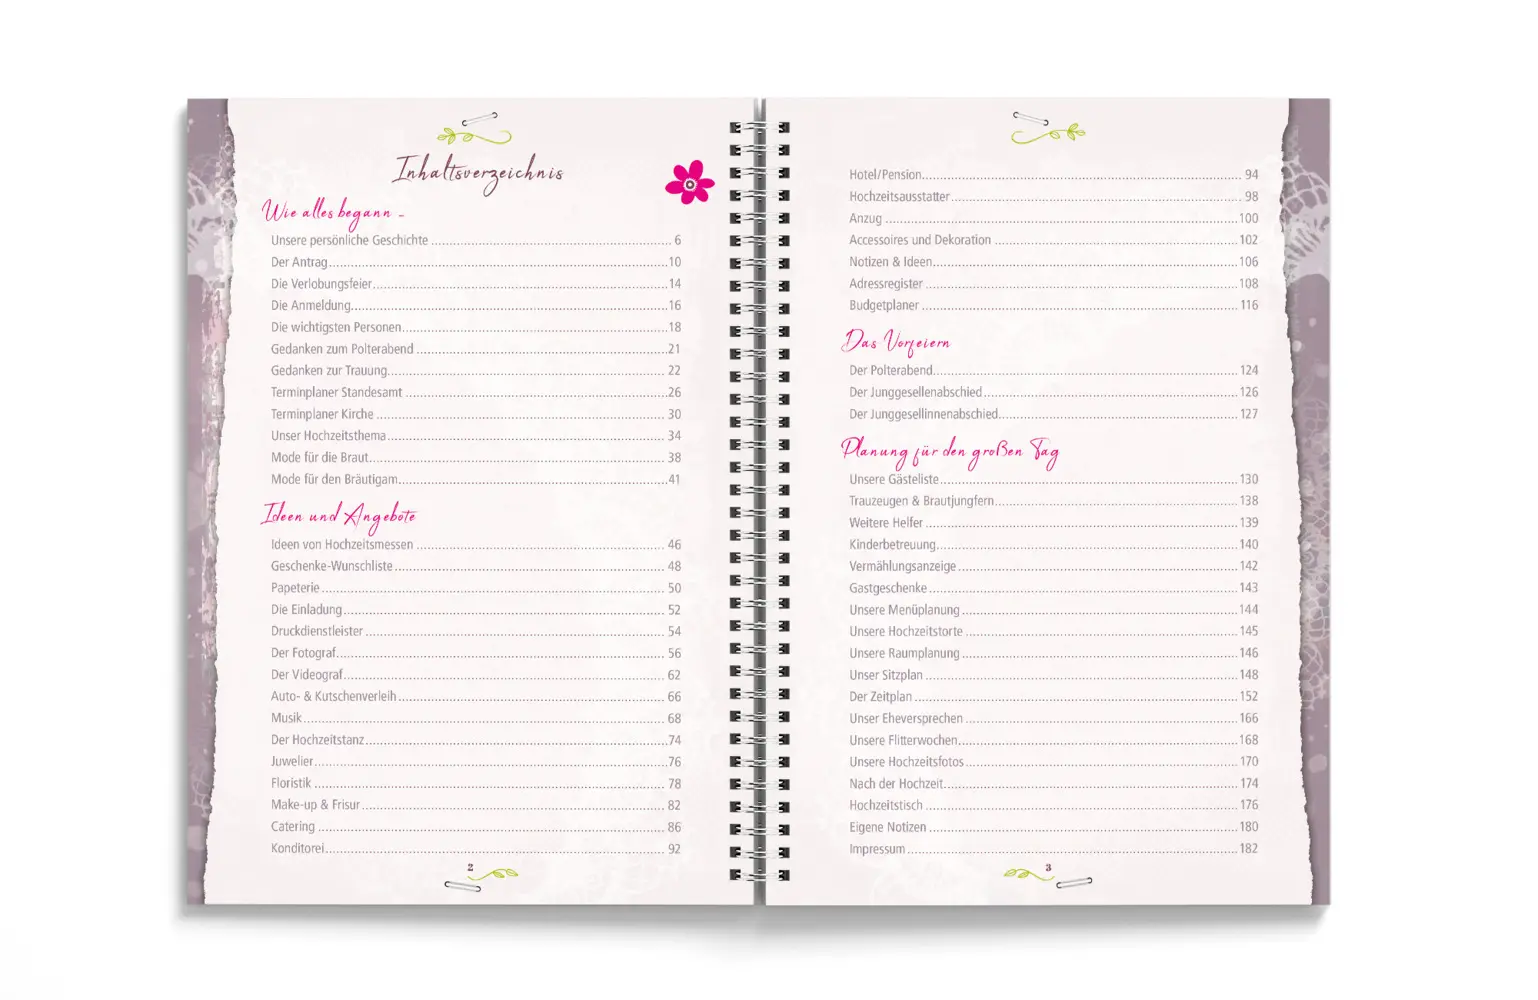 Inhaltsverzeichnis
Wie alles begann -
Unsere persönliche Geschichte 6
Der Antrag 10
Die Verlobungsfeier 14
Die Anmeldung 16
Die wichtigsten Personen 18
Gedanken zum Polterabend 21
Gedanken zur Trauung 22
Terminplaner Standesamt 26
Terminplaner Kirche 30
Unser Hochzeitsthema 34
Mode für die Braut 38
Mode für den Bräutigam 41
Ideen und Angebote
Ideen von Hochzeitsmessen 46
Geschenke-Wunschliste 48
Papeterie 50
Die Einladung 52
Druckdienstleister 54
Der Fotograf 56
Der Videograf 62
Auto- & Kutschenverleih 66
Musik 68
Der Hochzeitstanz 74
Juwelier 76
Floristik 78
Make-up & Frisur 82
Catering 86
Konditorei 92
2
Hotel/Pension 94
Hochzeitsausstatter 98
Anzug 100
Accessoires und Dekoration 102
Notizen & Ideen 106
Adressregister 108
Budgetplaner 116
Das Vorfeiern
Der Polterabend 124
Der Junggesellenabschied 126
Der Junggesellinnenabschied 127
Planung für den großen Tag
Unsere Gästeliste 130
Trauzeugen & Brautjungfern 138
Weitere Helfer 139
Kinderbetreuung 140
Vermählungsanzeige 142
Gastgeschenke 143
Unsere Menüplanung 144
Unsere Hochzeitstorte 145
Unsere Raumplanung 146
Unser Sitzplan 148
Der Zeitplan 152
Unser Eheversprechen 166
Unsere Flitterwochen 168
Unsere Hochzeitsfotos 170
Nach der Hochzeit 174
Hochzeitstisch 176
Eigene Notizen 180
Impressum 182
3